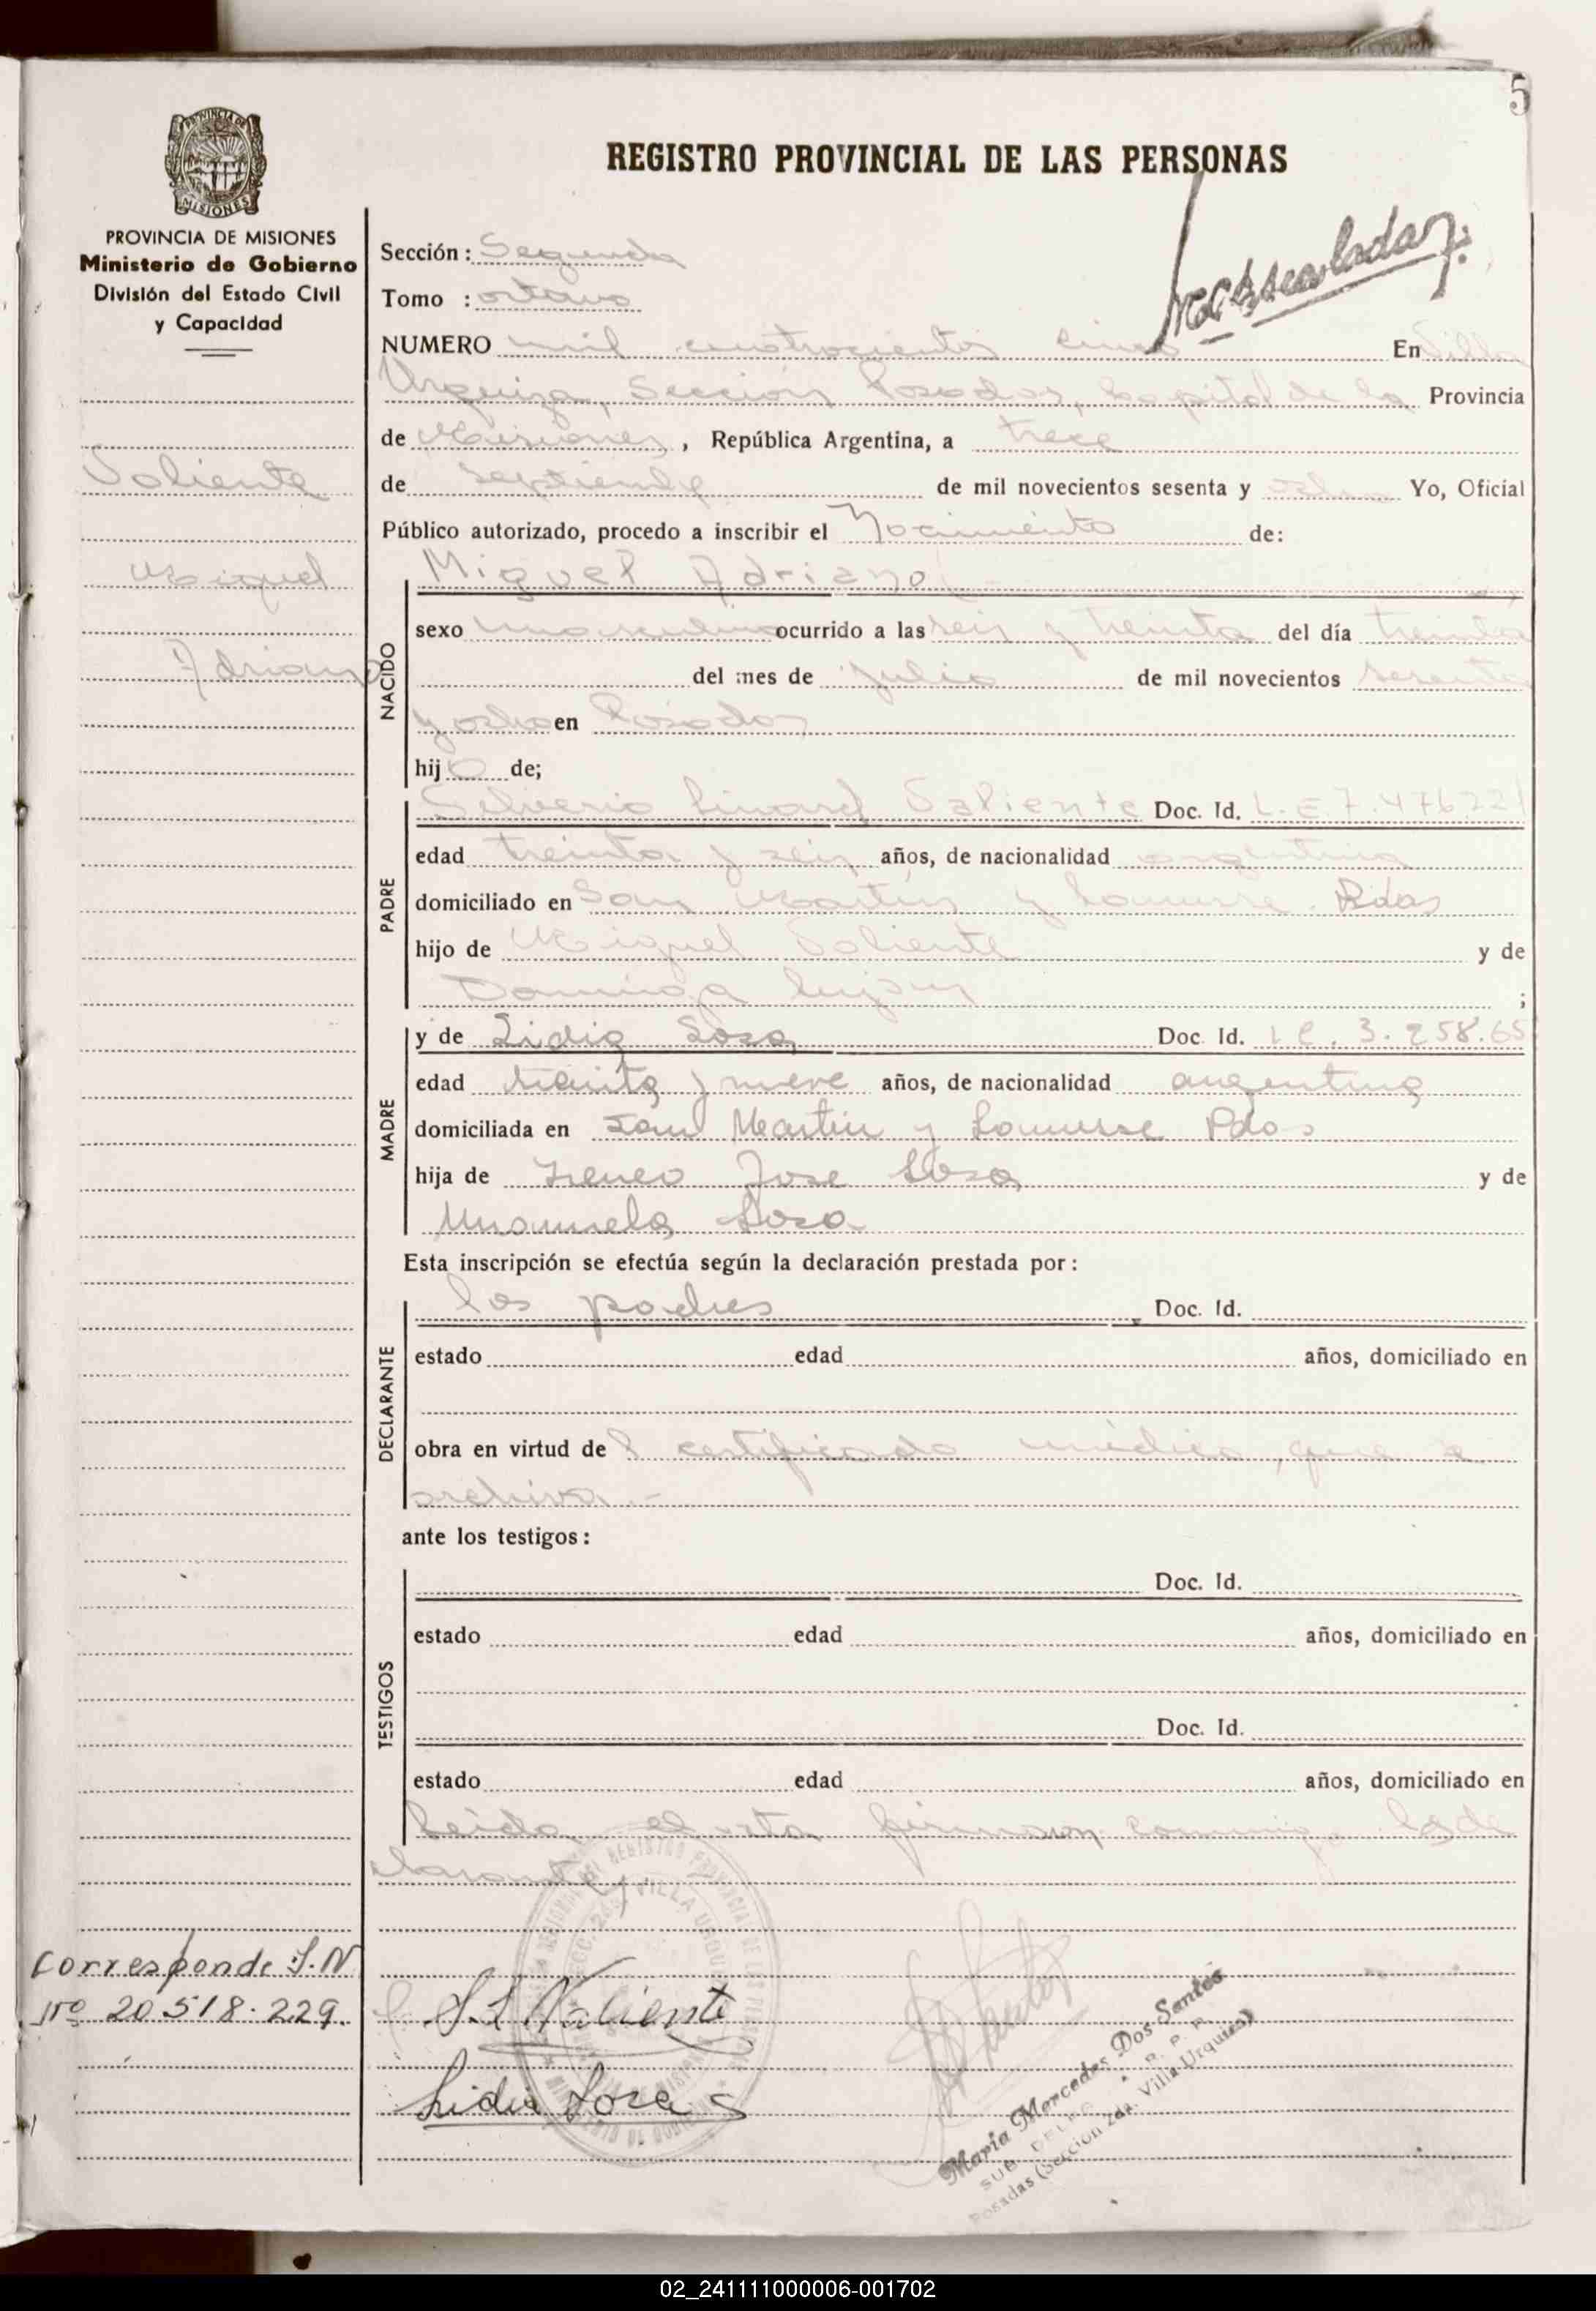 5
REGISTRO PROVINCIAL DE LAS PERSONAS
PROVINCIA DE
MISIONES
PROVINCIA DE MISIONES
Ministerio de Gobierno
División del Estado Civil
y Capacidad
Sección: Segunda
Tomo : octavo
NUMERO mil cuatrocientos cinco En Villa
Urquiza, Sección Posadas, Capital de la Provincia
de Misiones, República Argentina, a trece
de septiembre de mil novecientos sesenta y ocho Yo, Oficial
Público autorizado, procedo a inscribir el Nacimiento de:
Valiente
Miguel
Adriano
NACIDO
Miguel Adriano
sexo masculino ocurrido a las seis y treinta del día treinta
del mes de julio de mil novecientos sesenta
y ocho en Posadas
hijo de;
PADRE
Silverio Linard Valiente Doc. Id. L.E 7.476.221
edad treinta y seis años, de nacionalidad argentina
domiciliado en San Martín y Lanusse. Pdas
hijo de Miguel Valiente y de
Dominga Lujan ;
MADRE
y de Lidia Sosa Doc. Id. L C. 3.258.65
edad treinta y nueve años, de nacionalidad argentina
domiciliada en San Martin y Lanusse Pdas
hija de Ireneo Jose Sosa y de
Manuela Sosa
Esta inscripción se efectúa según la declaración prestada por:
DECLARANTE
los padres Doc. Id.
estado edad años, domiciliado en
obra en virtud del certificado médico, que se
archiva.-
ante los testigos:
TESTIGOS
Doc. Id.
estado edad años, domiciliado en
Doc. Id.
estado edad años, domiciliado en
Leída el acta firman conmigo los de
clarantes
Corresponde I.N
Nº 20.518.229.
S.L Valiente
Lidia Sosa
VILLA URQUIZA
María Mercedes Dos Santos
Posadas (Sección 2da. Villa Urquiza)
02_241111000006-001702